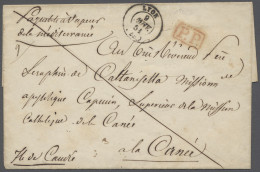 Paquebots à Vapeur
de la méditerranée
LYON
9
51
P.P.
Au très Révérend Père
Séraphin de Caltanisetta Missionn
apostolique Capucin, Supérieur de la Mission
Catholique de la Canée
Ile de Candie
à la Canée